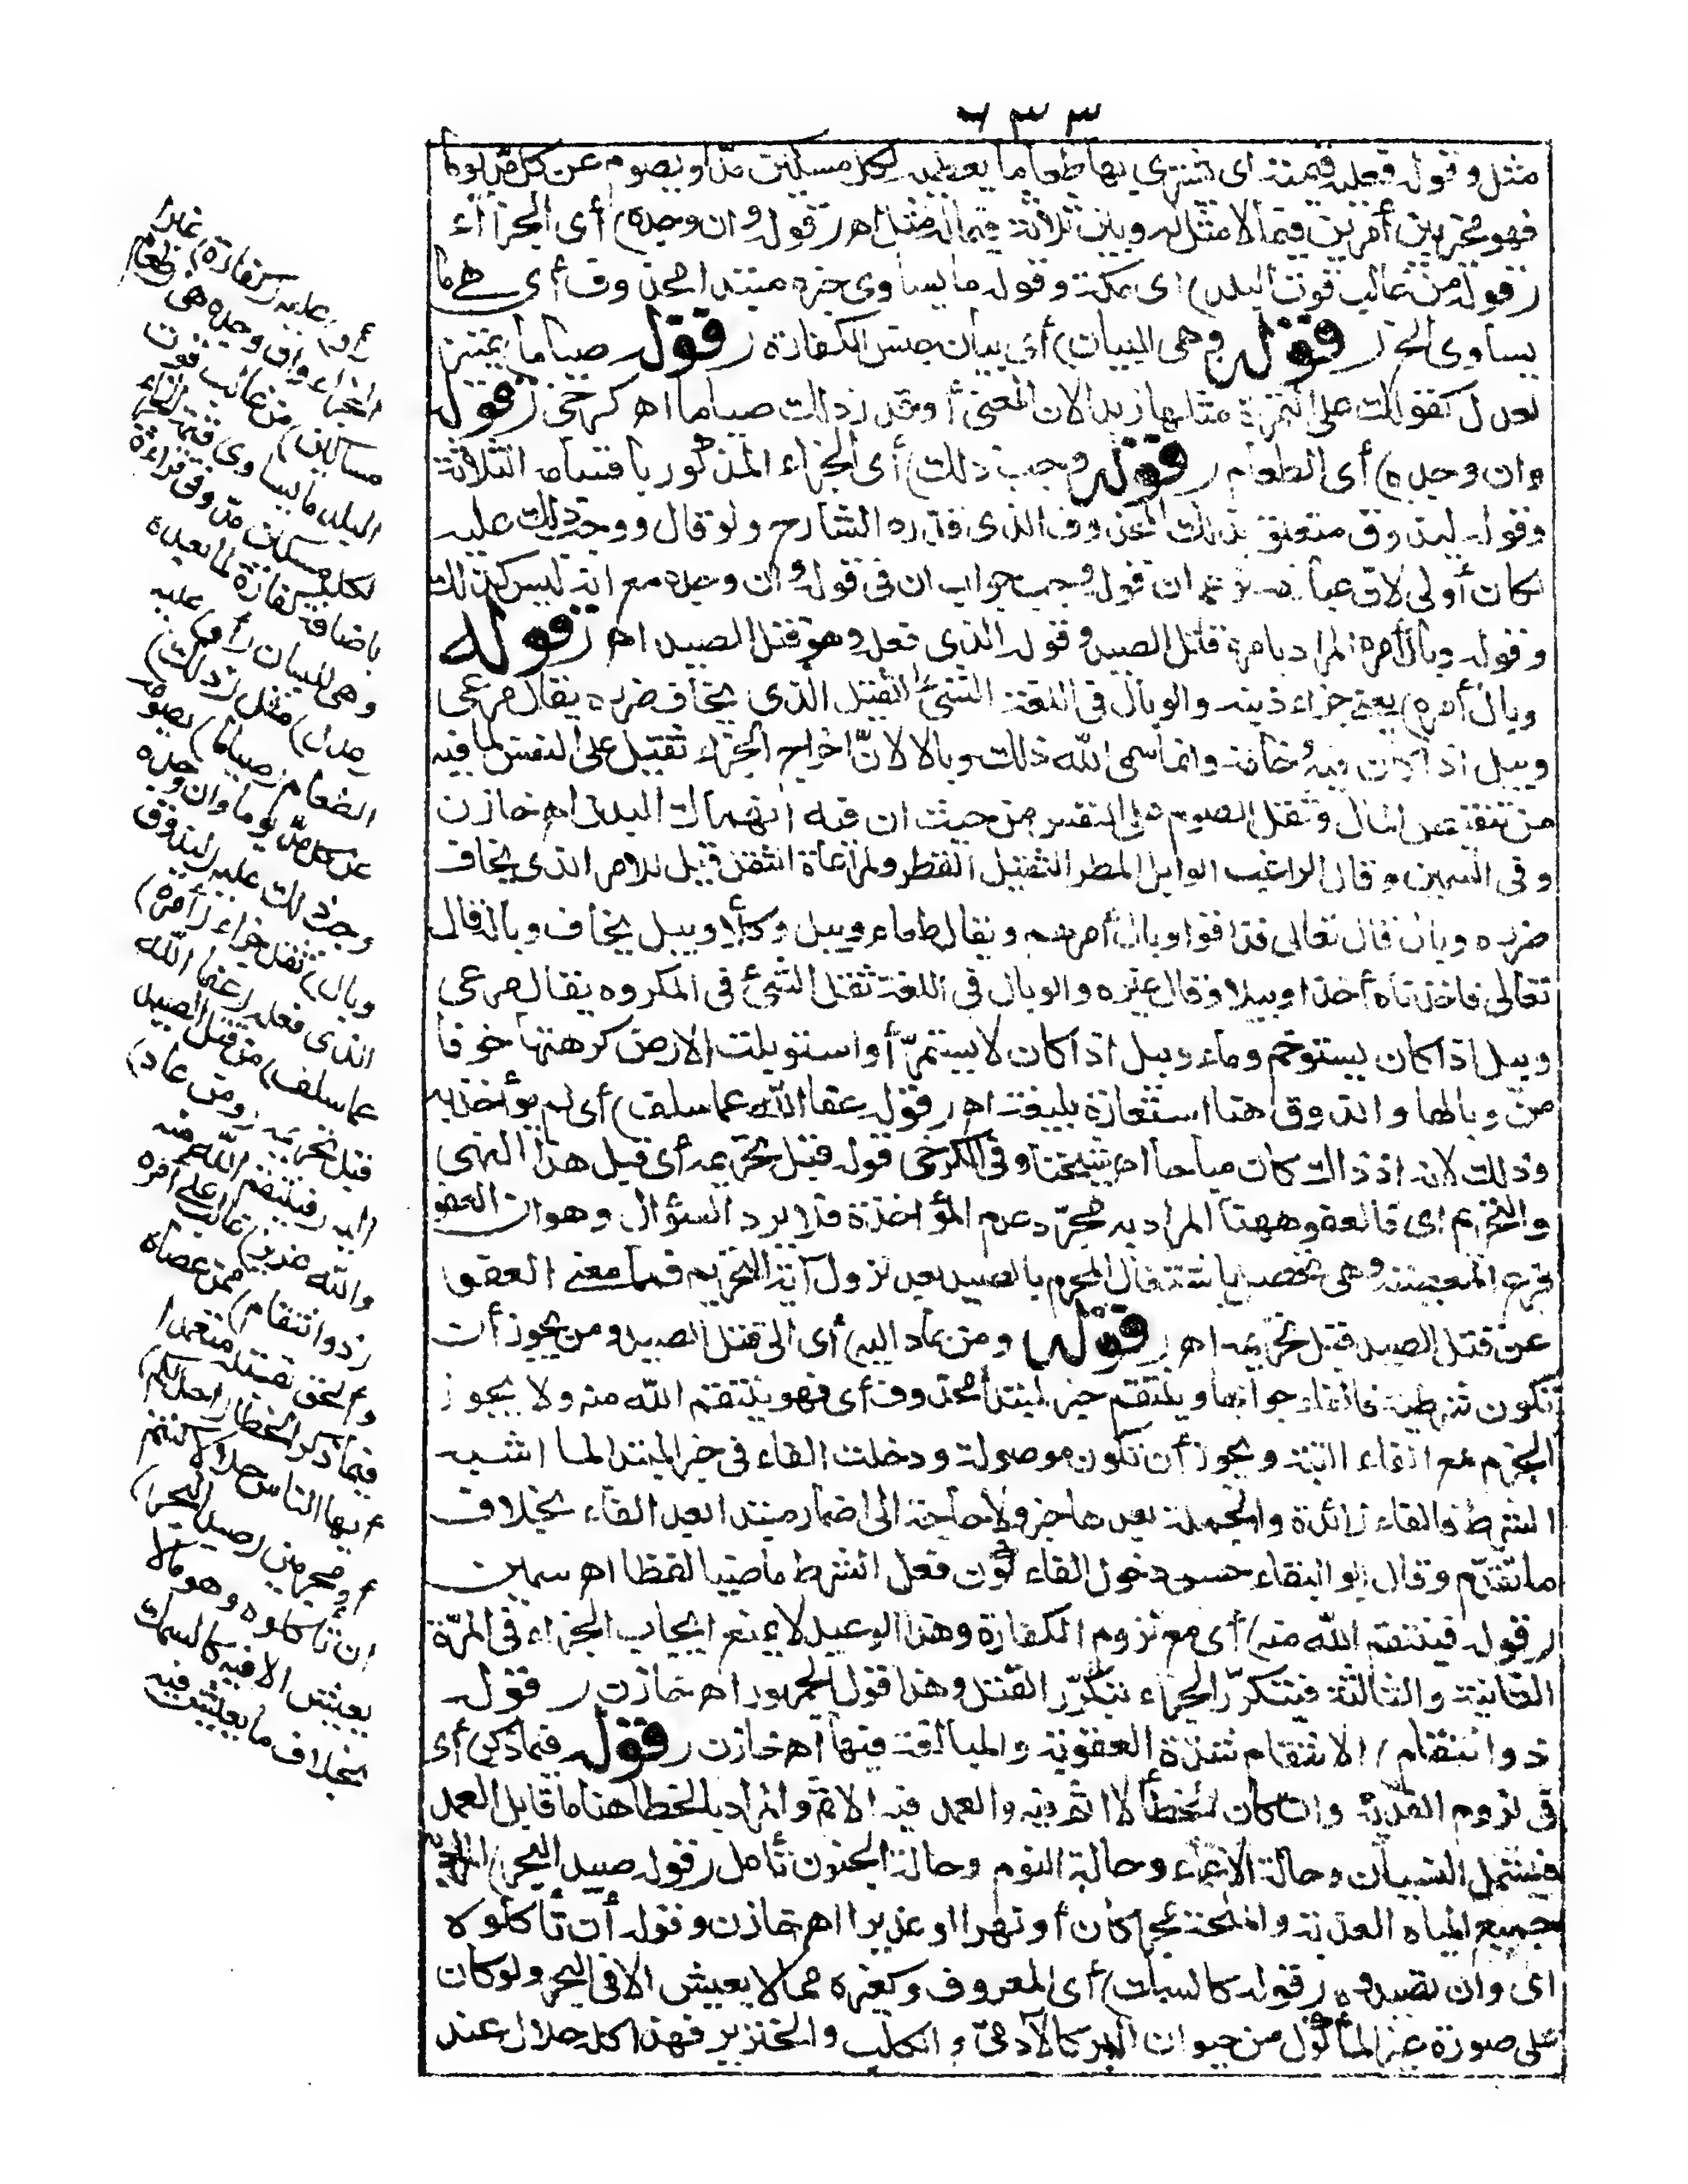 ٦٣٣
مثل وقوله فعليه قيمته أى يشترى بها طعاما يعطيه لكل مسكين مدّ أو يصوم عن كل مدّ يوما
فهو مخير بين أمرين فيما لا مثل له وبين ثلاثة فيما له مثل اهـ (قوله وان وجده) أى الجزاء
(قوله من غالب قوت البلد) أى مكة وقوله ما يساوى خبره مبتدا محذوف أى هى ما
يساوى الخ (قوله وهى للبيان) أى بيان جنس الكفارة (قوله صياما) تمييز
لعدل كقولك على التمرة مثلها زبدا لان المعنى أو قدر ذلك صياما اهـ كرخى (قوله
وان وجده) أى الطعام (قوله وجب ذلك) أى الجزاء المذكور بأقسامه الثلاثة
وقوله ليذوق متعلق بذلك المحذوف الذى قدره الشارح ولو قال ووجب ذلك عليه
لكان أولى لان عبارته توهم ان قوله وجب جواب ان فى قوله وان وجده مع انه ليس كذلك
وقوله وبال أمره المراد بامره قتل الصيد وقوله الذى فعله وهو قتل الصيد اهـ (قوله
وبال أمره) يعنى جزاء ذنبه والوبال فى اللغة الشىء الثقيل الذى يخاف ضرره يقال مرعى
وبيل اذا كان فيه وخامة وانما سمى الله ذلك وبالا لانّ اخراج الجزاء ثقيل على النفس لما فيه
من تنقيص المال وثقل الصوم على النفس من حيث ان فيه انهماك البدن اهـ خازن
وفى السمين وقال الراغب الوابل المطر الثقيل القطر ولمراعاة الثقل قيل للامر الذى يخاف
ضرره وبال قال تعالى فذاقوا وبال أمرهم ويقال طعام وبيل وكلأ وبيل يخاف وباله قال
تعالى فاخذناه أخذا وبيلا وقال غيره والوبال فى اللغة ثقل الشئ فى المكروه يقال مرعى
وبيل اذا كان يستوخم وماء وبيل اذا كان لا يستمرّأ واستوبلت الارض كرهتها خوفا
من وبالها والذوق هنا استعارة بليغة اهـ (قوله عفا الله عما سلف) أى لم يؤاخذ به
وذلك لانه اذ ذاك كان مباحا اهـ شيخنا وفى الكرخى قوله قبل تحريمه أى قبل هذا النهى
والتحريم اى فالعفو ههنا المراد به مجرّد عدم المؤاخذة فلا يرد السؤال وهو ان العفو
فرع المعصية وهى تحصل باشتغال المحرم بالصيد بعد نزول آية التحريم فما معنى العفو
عن قتل الصيد قبل تحريمه اهـ (قوله ومن عاد اليه) أى الى قتل الصيد ومن يجوز أن
تكون شرطية فالفاء جوابها وينتقم خبر لمبتدأ محذوف أى فهو ينتقم الله منه ولا يجوز
الجزم مع الفاء البتة ويجوز أن تكون موصولة ودخلت الفاء فى خبر المبتدا لما اشبه
الشرط فالفاء زائدة والجملة بعدها خبر ولا حاجة الى اضمار مبتدا بعد الفاء بخلاف
ما تقدّم وقال ابو البقاء حسن دخول الفاء كون فعل الشرط ماضيا لفظا اهـ سمين
(قوله فينتقم الله منه) أى مع لزوم الكفارة وهذا الوعيد لا يمنع ايجاب الجزاء فى المرّة
الثانية والثالثة فيتكرّر الجزاء بتكرّر القتل وهذا قول الجمهور اهـ خازن (قوله
ذو انتقام) الانتقام شدّة العقوبة والمبالغة فيها اهـ خازن (قوله فيما ذكر) أى
فى لزوم الفدية وان كان الخطأ لا اثم فيه والعمد فيه الاثم والمراد بالخطا هنا ما قابل العمد
فيشمل النسيان وحالة الاغماء وحالة النوم وحالة الجنون تأمل (قوله صيد البحر) المراد به
جميع المياه العذبة والملحة بحرا كان أو نهرا او غديرا اهـ خازن وقوله أن تأكلوه
اى وان تصيدوه (قوله كالسمك) أى المعروف وكغيره مما لا يعيش الا فى البحر ولو كان
على صورة غير المأكول من حيوان البر كالآدمىّ والكلب والخنزير فهذا كله حلال عند
(أو) عليه (كفارة) غير
الجزاء وان وجده هى (طعام
مساكين) من غالب قوت
البلد ما يساوى قيمة الجزاء
لكل مسكين مدّ وفى قراءة
باضافة كفارة لما بعده
وهى للبيان (أو) عليه
عدل) مثل (ذلك)
الطعام (صياما) يصومه
عن كل مدّ يوما وان وجده
وجب ذلك عليه (ليذوق
وبال) ثقل جزاء (أمره)
الذى فعله (عفا الله
عما سلف) من قتل الصيد
قبل تحريمه (ومن عاد)
اليه (فينتقم الله منه
والله عزيز) غالب على أمره
(ذو انتقام) ممن عصاه
والحق بقتله متعمدا
فيما ذكر الخطا (احل لكم)
أيها الناس حلالا كنتم
أو محرمين (صيد البحر)
ان تأكلوه وهو ما لا
يعيش الا فيه كالسمك
بخلاف ما يعيش فيه